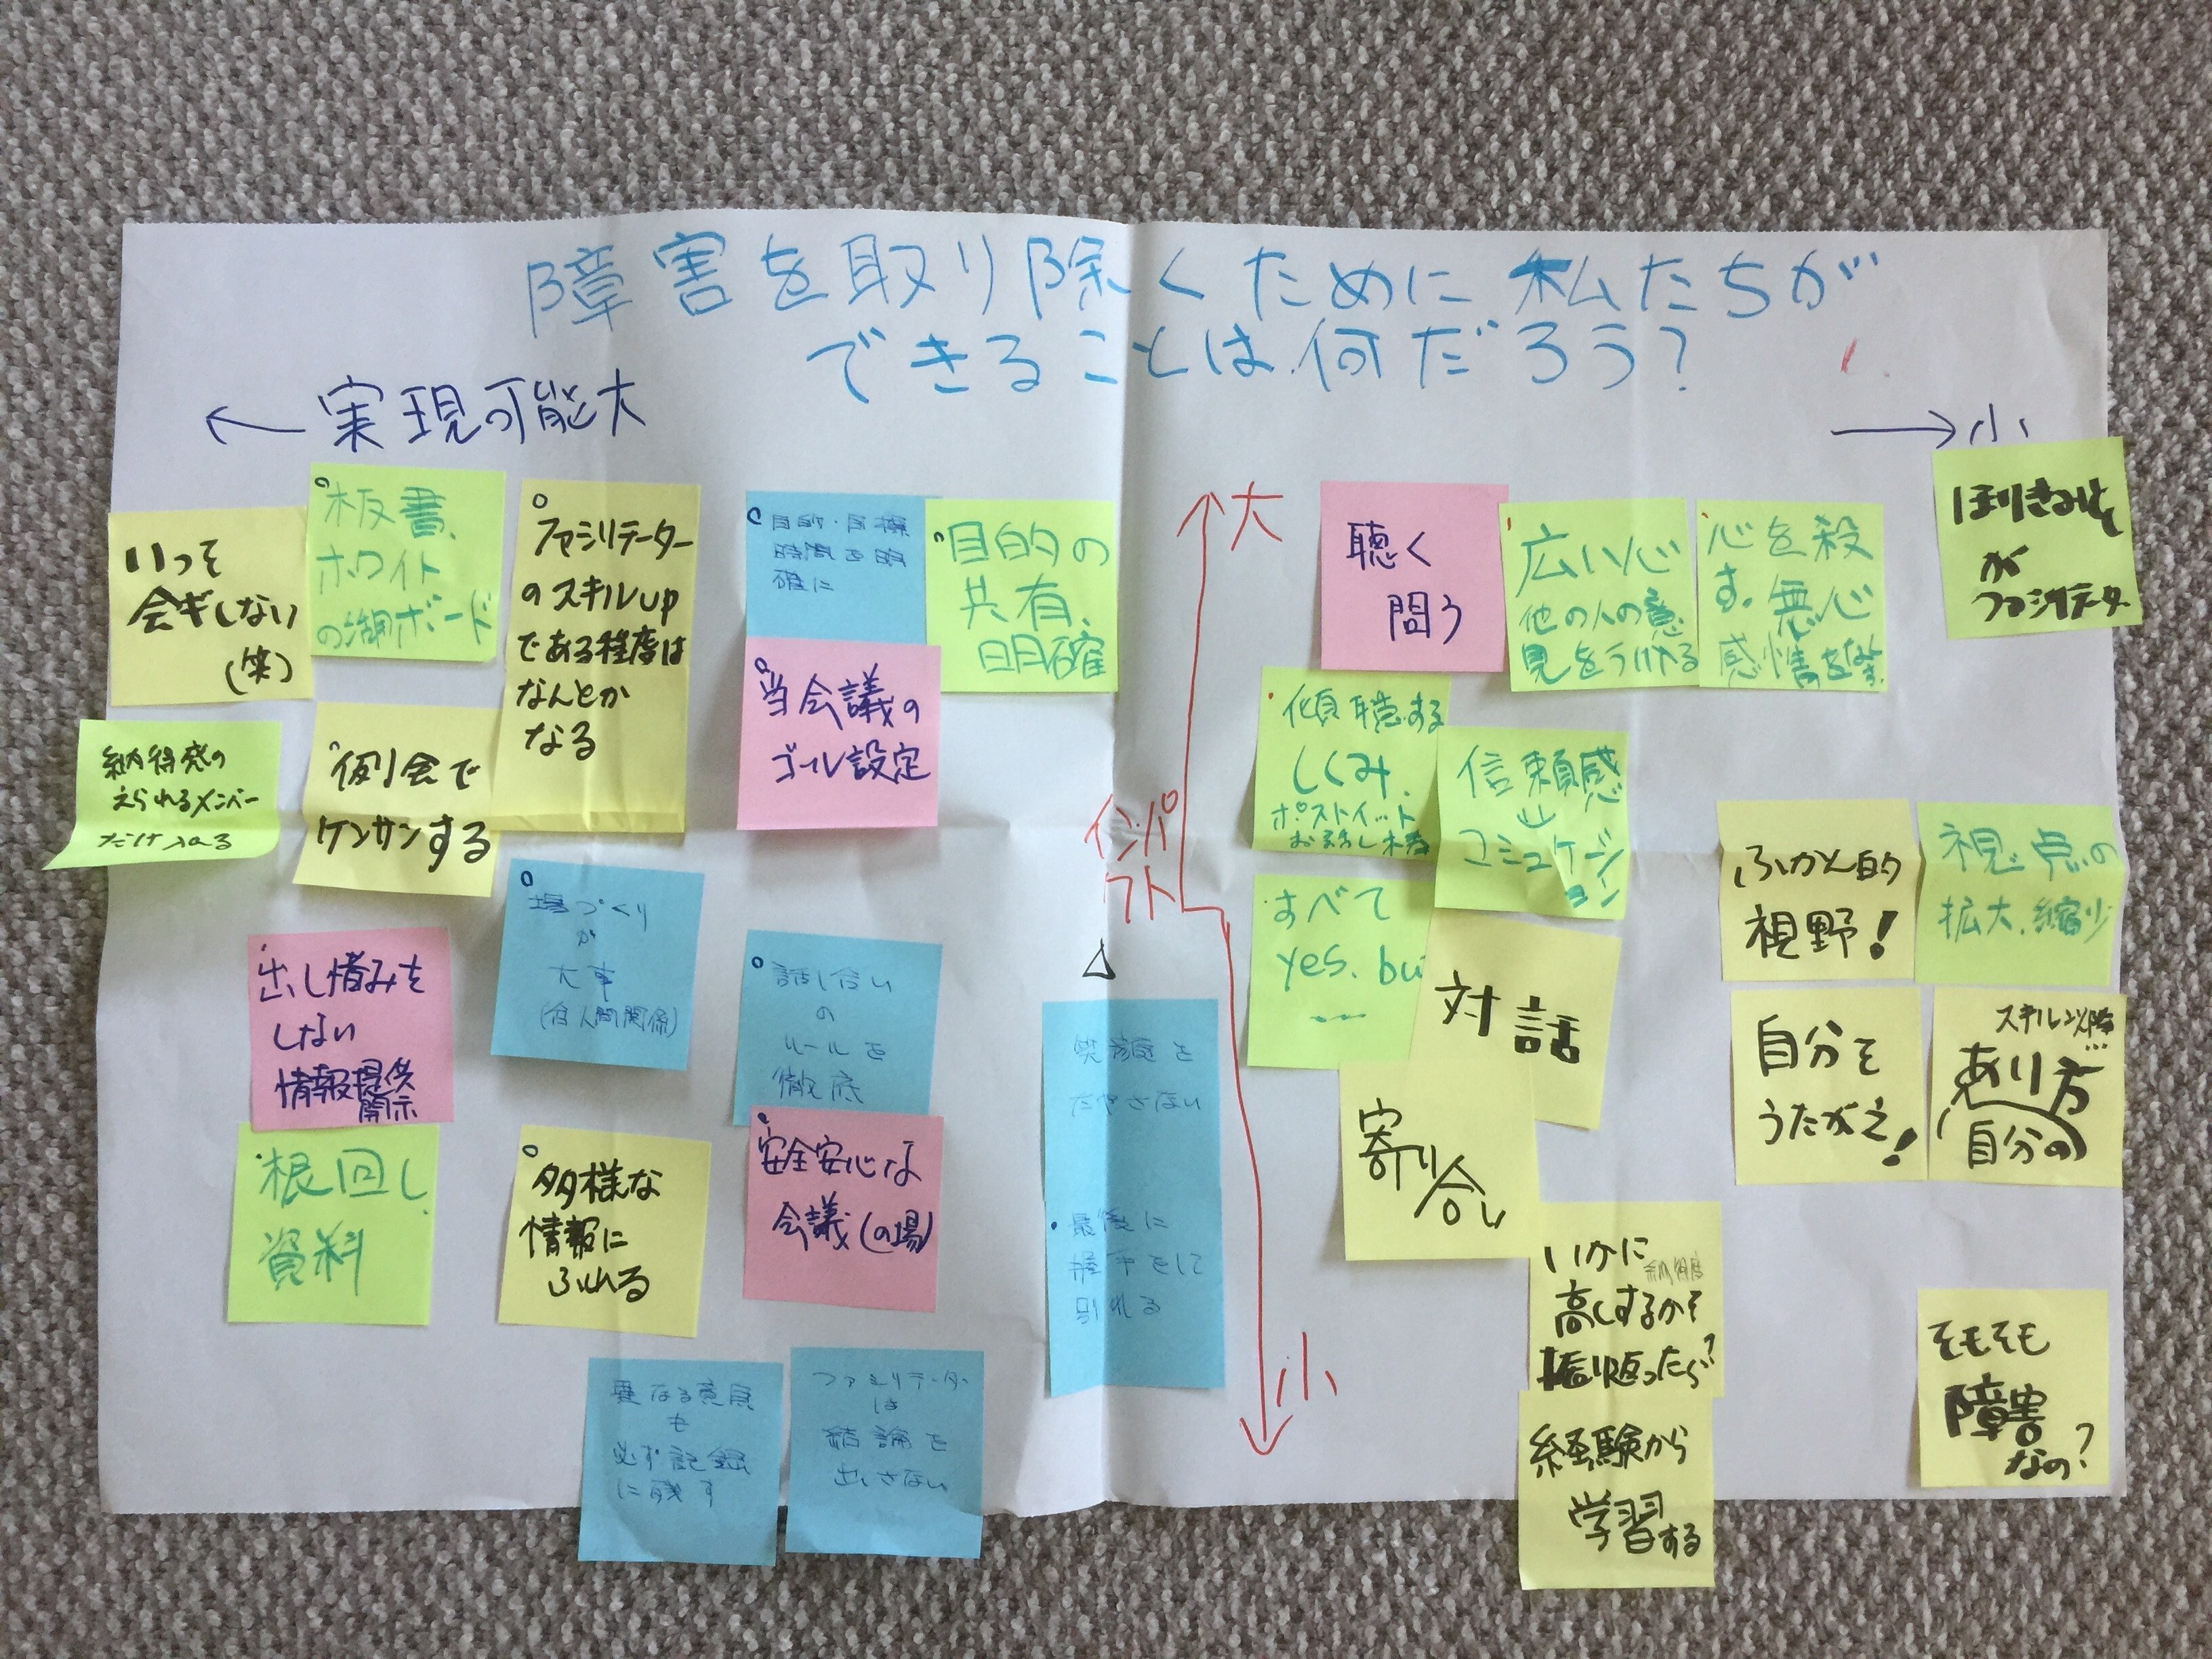 障害を取り除くために私たちが
できることは何だろう？
← 実現可能大
→ 小
いって
会ギしない
(笑)
板書、
ホワイト
ボード
ファシリテーター
のスキルup
である程度は
なんとか
なる
目的・目標
時間を明
確に
目的の
共有、
明確
当会議の
ゴール設定
納得感の
えられるメンバー
だけ入れる
例会で
ケンサンする
場づくり
が
大事
人間関係)
出し惜みを
しない
情報提供
開示
話し合い
の
ルールを
徹底
根回し
資料
多様な
情報に
ふれる
安全安心な
会議(の場)
異なる意見
も
必ず記録
に残す
ファシリテーター
は
結論を
出さない
笑顔を
たやさない
最後に
握手をして
別れる
大
インパ
クト
小
聴く
問う
広い心
他の人の意
見をうける
心を殺
す。無心
感情を
が
ファシリテーター
傾聴する
しくみ、
ポストイット
お話し
信頼感
コミュニケーション
すべて
yes. bu
対話
寄り合い
ふかん的
視野！
視点の
拡大、縮少
自分を
うたがえ！
スキル以降
あり方
自分の
いかに
納得度
高くするかを
振り返ったら？
経験から
学習する
そもそも
障害
なの？